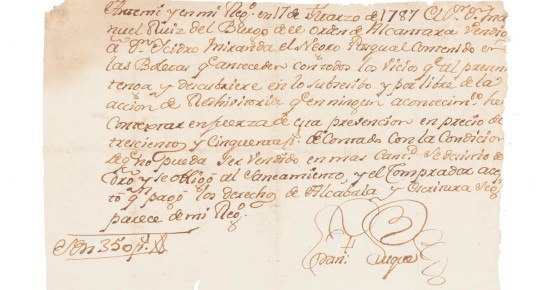 Ante mi y en mi Reg.º en 17 de Marzo de 1787 el S.r D.n Ma
nuel Ruiz del Burgo de el orden de Alcantara Vendio
a D.n Isidro Miranda el Negro Pasqual Contenido en
las Boletas q.e anteceden con todos los Vicios q.e al presen.te
tenga y descubriere en lo subcesibo y por libre de la
accion de Reshivitoria q.e en ningun acontecim.to ha de
Contextar en fuerza de esta prevencion en precio de
trescientos y Cinquenta p.s de Contado con la Condicion
de q.e no pueda ser Vendido en mas Cant.d
y se obligó al Saneamiento, y el Comprador acep
tó y pagó los derechos de Alcabala y Escritura Seg.n
parece de mi Reg.º
Son 350 p.s
Dan.l Duque